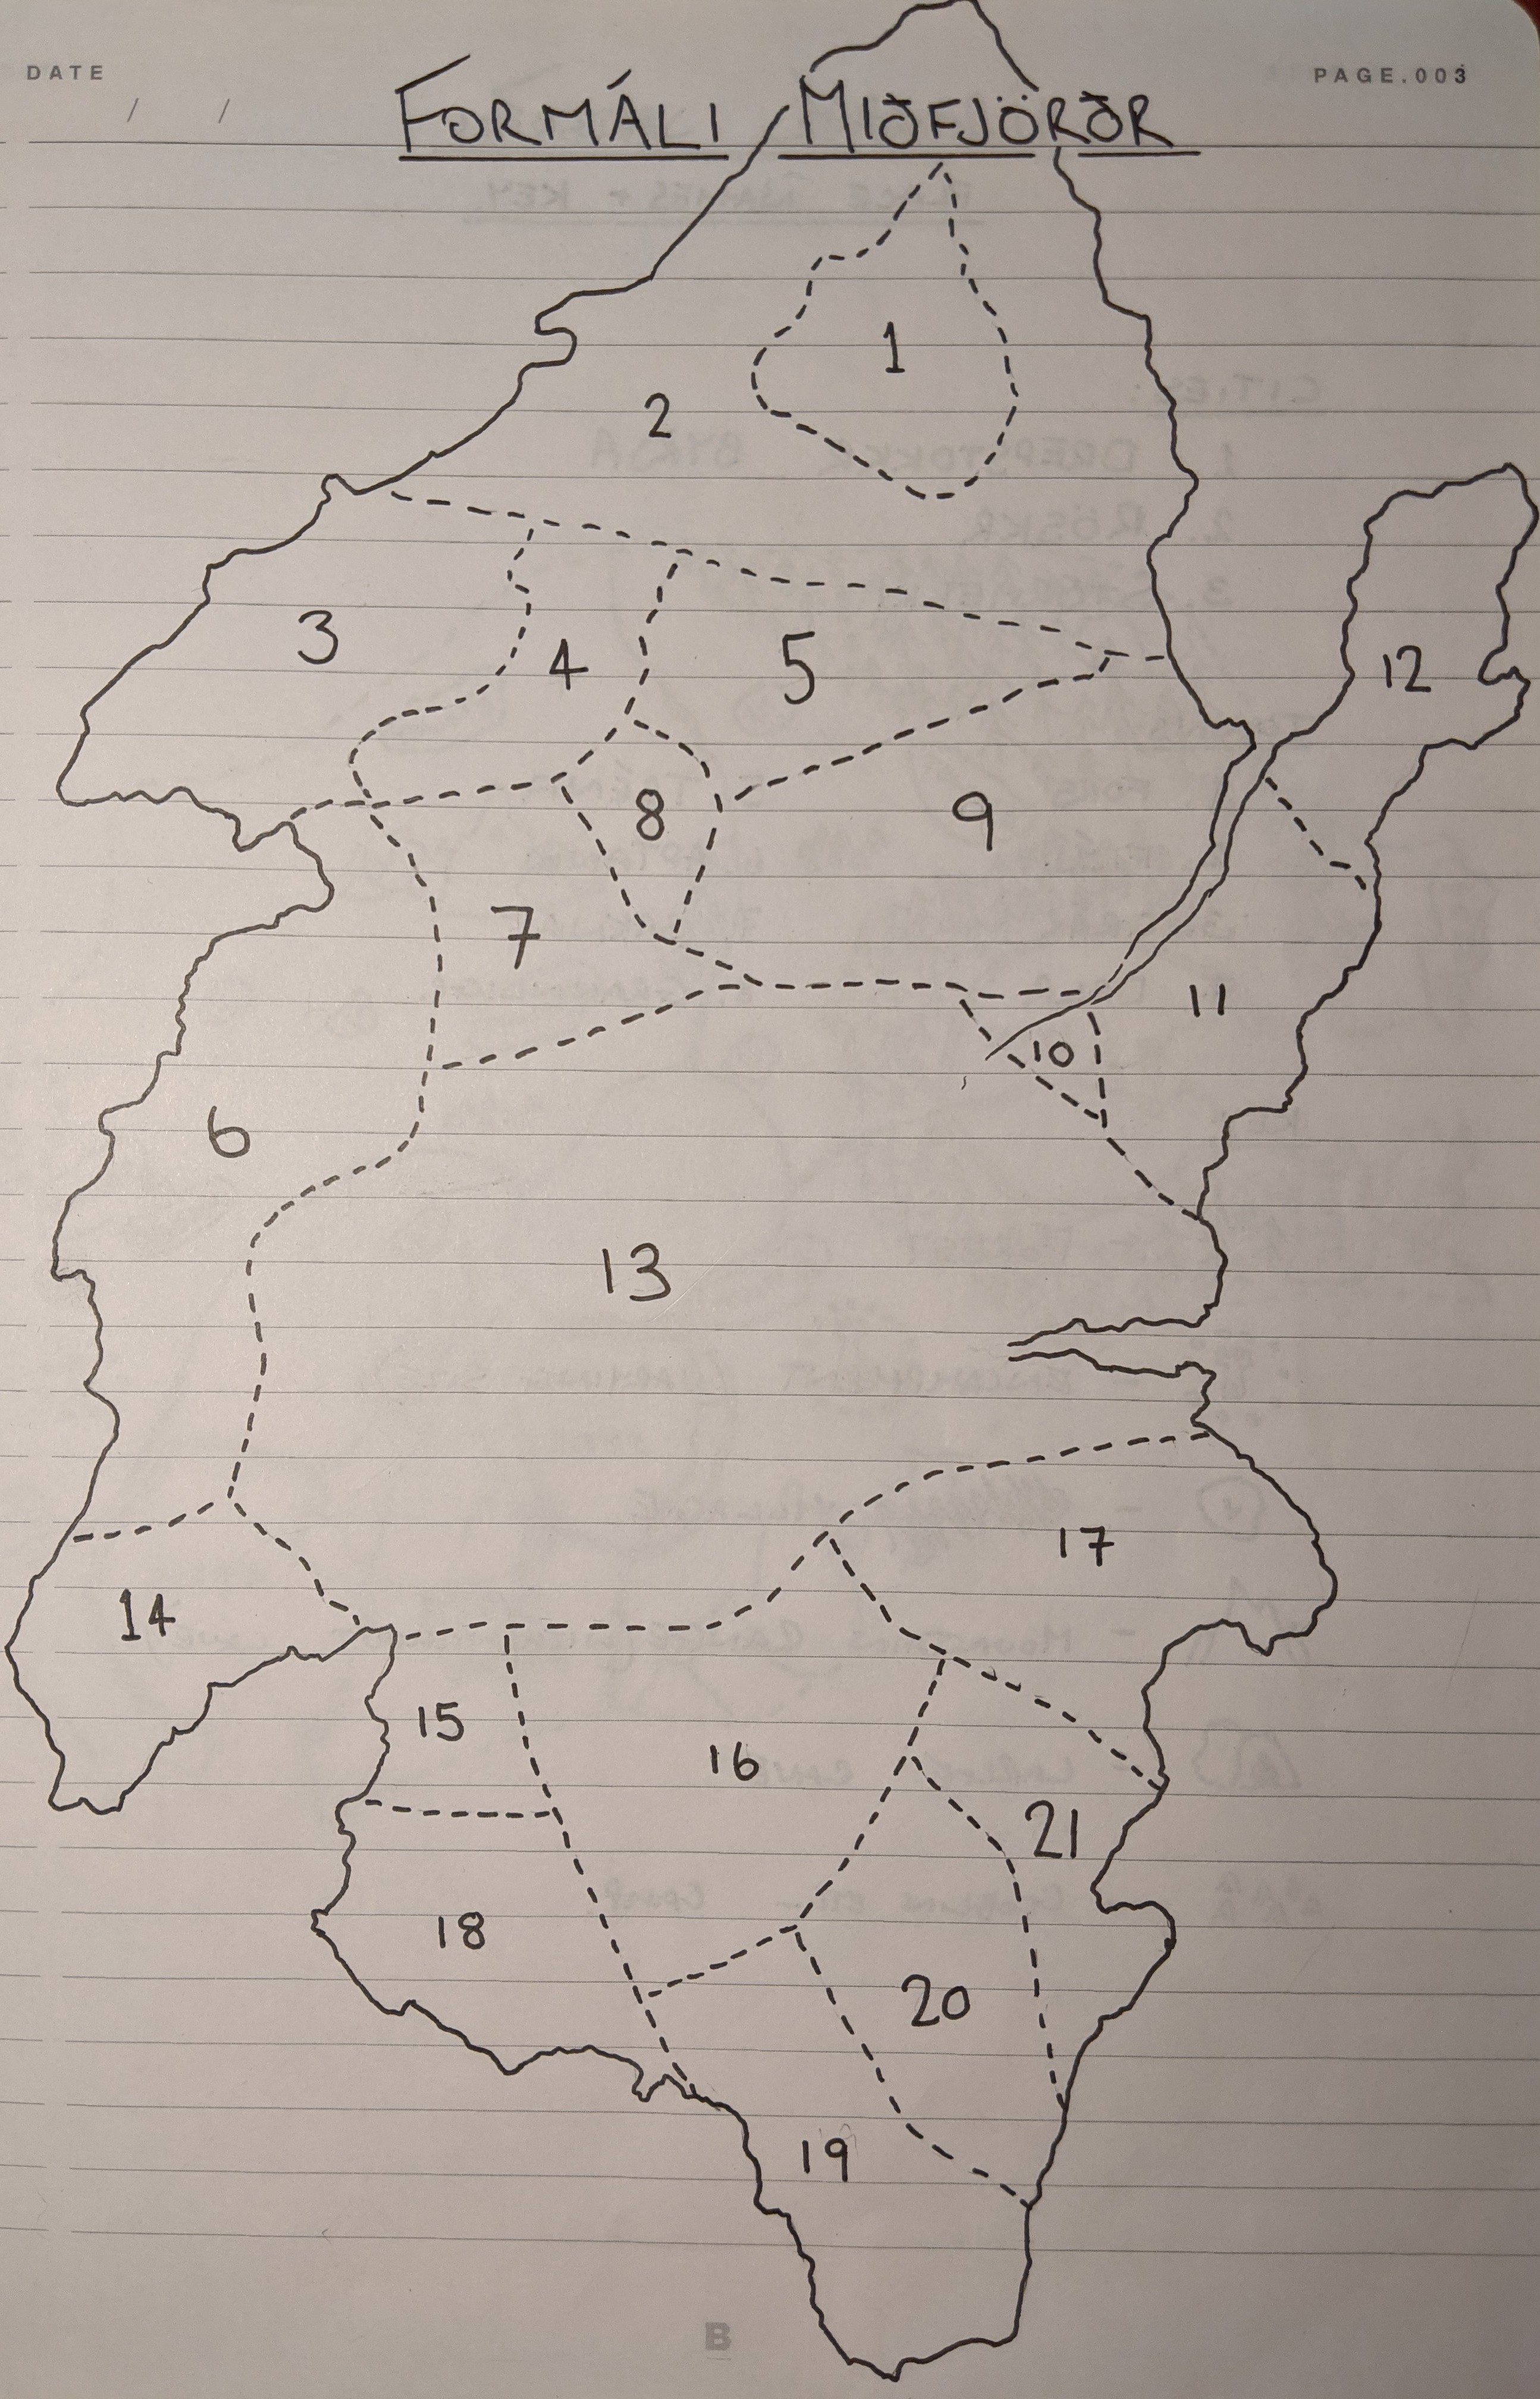 DATE
PAGE.003
/ /
FORMÁLI MIÐFJÖRÐR
1
2
3
4
5
12
8
9
7
11
10
6
13
17
14
15
16
21
18
20
19
B